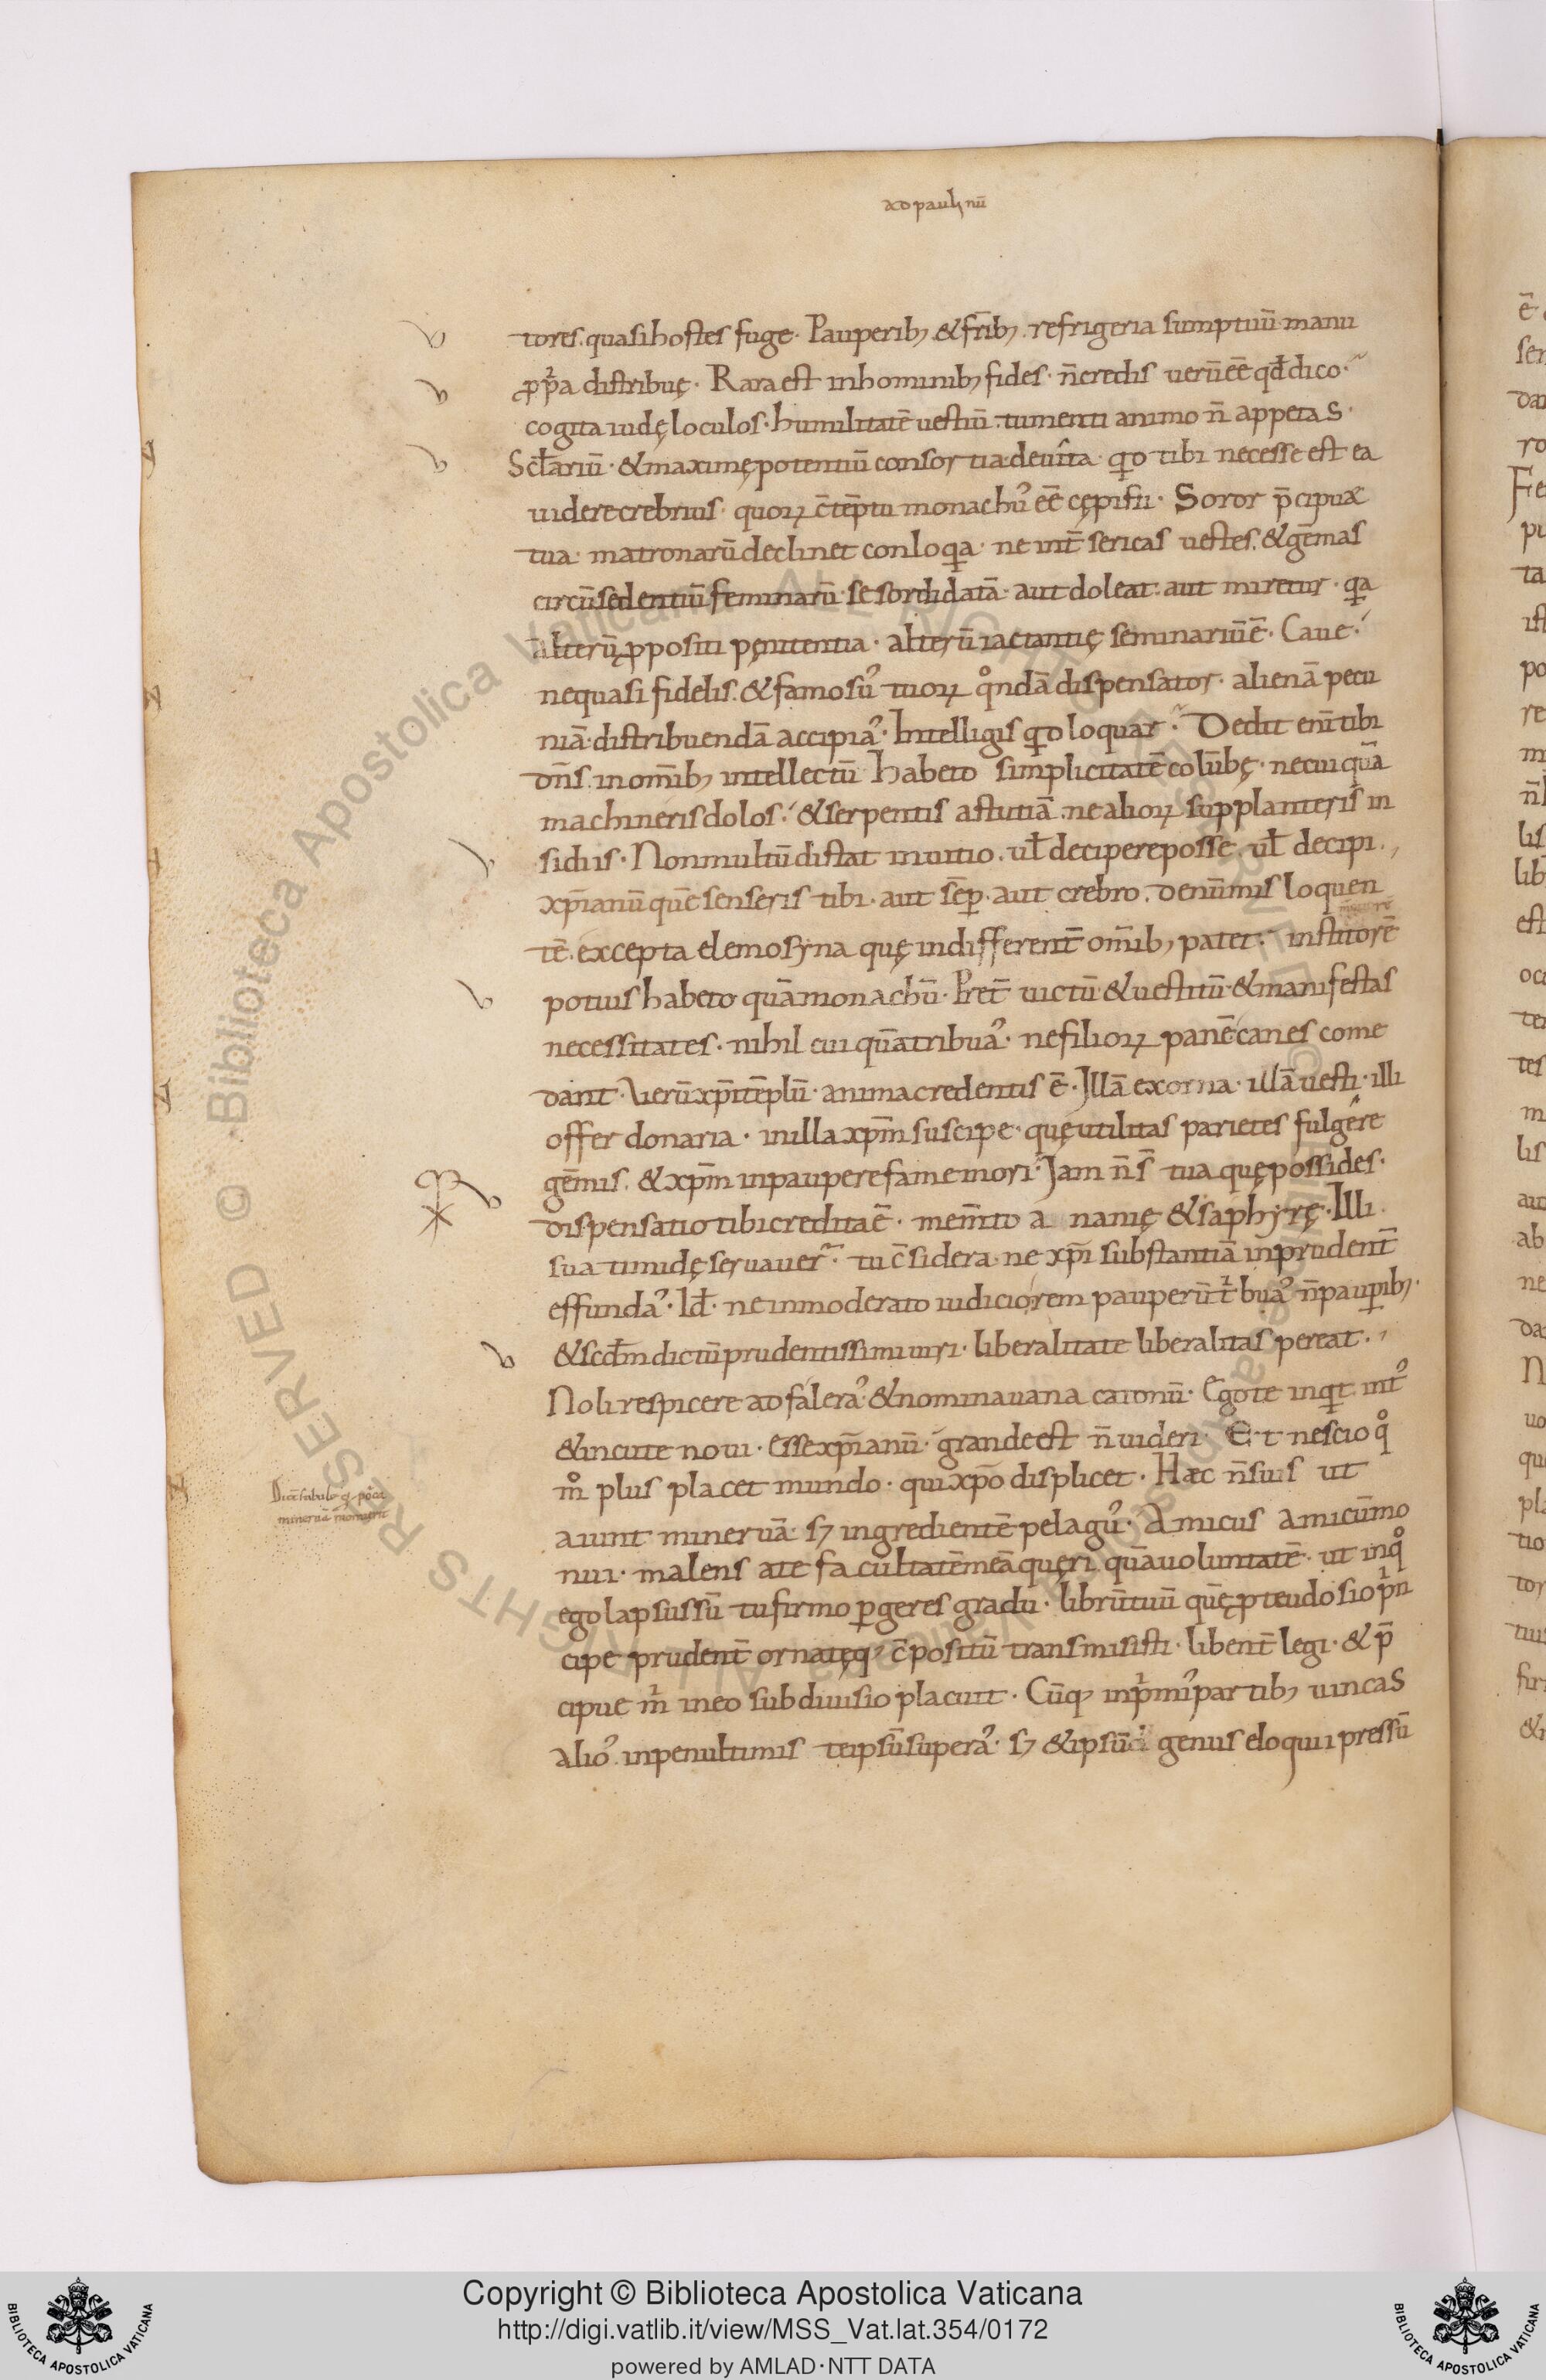 ad paulinū
tores. quasi hostes fuge. Pauperib; & fr̄ib; refrigeria sumptuū manu
ꝓpͥa distribuę. Rara est in hominib; fides. n̄ credis uerū eē qđ dico.
cogita iudę loculos. humilitatē uestiū. tumenti animo n̄ appetas.
Sc̄lariū. & maximę potentiū consortia deuîta. qͥd tibi necesse est ea
uidere crebrius. quoꝝ c̄tēptu monachꝰ eē cępisti. Soror p̄cipuæ
tua. matronarū declinet conloqͥa. ne int̄ sericas uestes. & gēmas
circūsedentiū feminarū. se sordidatā. aut doleat. aut miretur. qͥa
alterū ꝓpositi pęnitentia. alterū iactantię seminariū ē. Caue.
ne quasi fidelis. & famosꝰ tuoꝝ qͦndā dispensator. alienā pecu
niā. distribuendā accipiaꝰ. Intelligis qͥd loquar. Dedit enī tibi
dn̄s. in om̄ib; intellectū habeto simplicitatē colūbę. ne cuiquā
machineris dolos. & serpentis astutiā. ne alioꝝ supplanteris in
sidiis. Non multū distat in uitio. uł decipere posse. uł decipi.
xp̄ianū quē senseris tibi. aut sēꝑ. aut crebro. de nūmis loquen
tē. excepta elemosyna quę indifferent̄ om̄ib; patet. institorē
potius habeto quā monachū. Pret̄ uictū & uestitū. & manifestas
necessitates. nihil cuiquā tribuaꝰ. ne filioꝝ panē canes come
dant. Verū xp̄i tēplū. anima credentis ē. Illā exorna. illā uesti. illi
offer donaria. in illa xp̄m suscipe. quę utilitas parietes fulgere
gēmis. & xp̄m in paupere fame mori. Jam n̄ s̄ tua quę possides.
dispensatio tibi credita ē. mem̄to a nanię & saphyrę. Illi.
sua timidę seruauer̄. tu c̄sidera. ne xp̄i substantiā inprudent̄
effundaꝰ. Id̄. ne inmoderato iudicio. rem pauperū tͥbuaꝰ n̄ pauꝑib;.
& scd̄m dictū prudentissimi uiri. liberalitate liberalitas pereat.
Noli respicere ad faleraꝰ. & nomina uana catonū. Ego te inqͥt intꝰ
& in cute noui. esse xp̄ianū. grande est n̄ uideri. Et nescio qͦ
mͦ plus placet mundo. qui xp̄o displicet. Hæc n̄ suis ut
aiunt mineruā. s; ingredientē pelagꝰ. Amicus amicū mo
nui. malens a te facultatē meā quęri. quā uoluntatē. ut inqͦ
ego lapsus sū tu firmo ꝑgeres gradu. librū tuū quē ꝓ teudosio pͥn
cipe prudent̄ ornatęq; c̄positū transmisisti. libent̄ legi. & p̄
cipue mͥ in eo subdiuisio placuit. Cūq; in pͥmiꝰ partib; uincas
alioꝰ. in penultimis te ipsū superaꝰ. s; & ipsū genus eloquii pressū
Copyright © Biblioteca Apostolica Vaticana
http://digi.vatlib.it/view/MSS_Vat.lat.354/0172
powered by AMLAD·NTT DATA
BIBLIOTECA APOSTOLICA VATICANA
BIBLIOTECA APOSTOLICA VATICANA